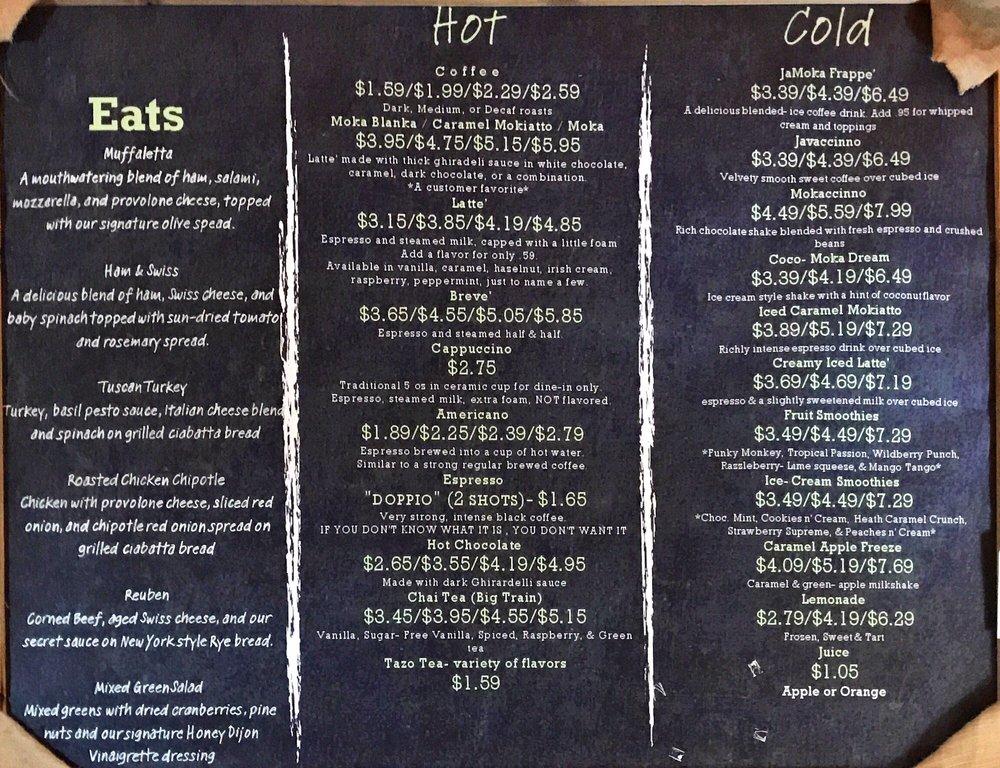 Eats
Muffaletta
A mouthwatering blend of ham, salami,
mozzarella, and provolone cheese, topped
with our signature olive spead.
Ham & Swiss
A delicious blend of ham, Swiss cheese, and
baby spinach topped with sun-dried tomato
and rosemary spread.
Tuscan Turkey
Turkey, basil pesto sauce, Italian cheese blend
and spinach on grilled ciabatta bread
Roasted Chicken Chipotle
Chicken with provolone cheese, sliced red
onion, and chipotle red onion spread on
grilled ciabatta bread
Reuben
Corned Beef, aged Swiss cheese, and our
secret sauce on New York style Rye bread.
Mixed Green Salad
Mixed greens with dried cranberries, pine
nuts and our signature Honey Dijon
Vinaigrette dressing
Hot
Coffee
$1.59/$1.99/$2.29/$2.59
Dark, Medium, or Decaf roasts
Moka Blanka / Caramel Mokiatto / Moka
$3.95/$4.75/$5.15/$5.95
Latte' made with thick ghiradeli sauce in white chocolate,
caramel, dark chocolate, or a combination.
*A customer favorite*
Latte'
$3.15/$3.85/$4.19/$4.85
Espresso and steamed milk, capped with a little foam
Add a flavor for only .59.
Available in vanilla, caramel, hazelnut, irish cream,
raspberry, peppermint, just to name a few.
Breve'
$3.65/$4.55/$5.05/$5.85
Espresso and steamed half & half.
Cappuccino
$2.75
Traditional 5 oz in ceramic cup for dine-in only.
Espresso, steamed milk, extra foam, NOT flavored.
Americano
$1.89/$2.25/$2.39/$2.79
Espresso brewed into a cup of hot water.
Similar to a strong regular brewed coffee.
Espresso
"DOPPIO" (2 SHOTS)- $1.65
Very strong, intense black coffee.
IF YOU DON'T KNOW WHAT IT IS, YOU DON'T WANT IT
Hot Chocolate
$2.65/$3.55/$4.19/$4.95
Made with dark Ghirardelli sauce
Chai Tea (Big Train)
$3.45/$3.95/$4.55/$5.15
Vanilla, Sugar- Free Vanilla, Spiced, Raspberry, & Green
tea
Tazo Tea- variety of flavors
$1.59
Cold
JaMoka Frappe'
$3.39/$4.39/$6.49
A delicious blended- ice coffee drink. Add .95 for whipped
cream and toppings
Javaccinno
$3.39/$4.39/$6.49
Velvety smooth sweet coffee over cubed ice
Mokaccinno
$4.49/$5.59/$7.99
Rich chocolate shake blended with fresh espresso and crushed
beans
Coco- Moka Dream
$3.39/$4.19/$6.49
Ice cream style shake with a hint of coconut flavor
Iced Caramel Mokiatto
$3.89/$5.19/$7.29
Richly intense espresso drink over cubed ice
Creamy Iced Latte'
$3.69/$4.69/$7.19
espresso & a slightly sweetened milk over cubed ice
Fruit Smoothies
$3.49/$4.49/$7.29
*Funky Monkey, Tropical Passion, Wildberry Punch,
Razzleberry- Lime squeeze, & Mango Tango*
Ice- Cream Smoothies
$3.49/$4.49/$7.29
*Choc. Mint, Cookies n' Cream, Heath Caramel Crunch,
Strawberry Supreme, & Peaches n' Cream*
Caramel Apple Freeze
$4.09/$5.19/$7.69
Caramel & green- apple milkshake
Lemonade
$2.79/$4.19/$6.29
Frozen, Sweet & Tart
Juice
$1.05
Apple or Orange